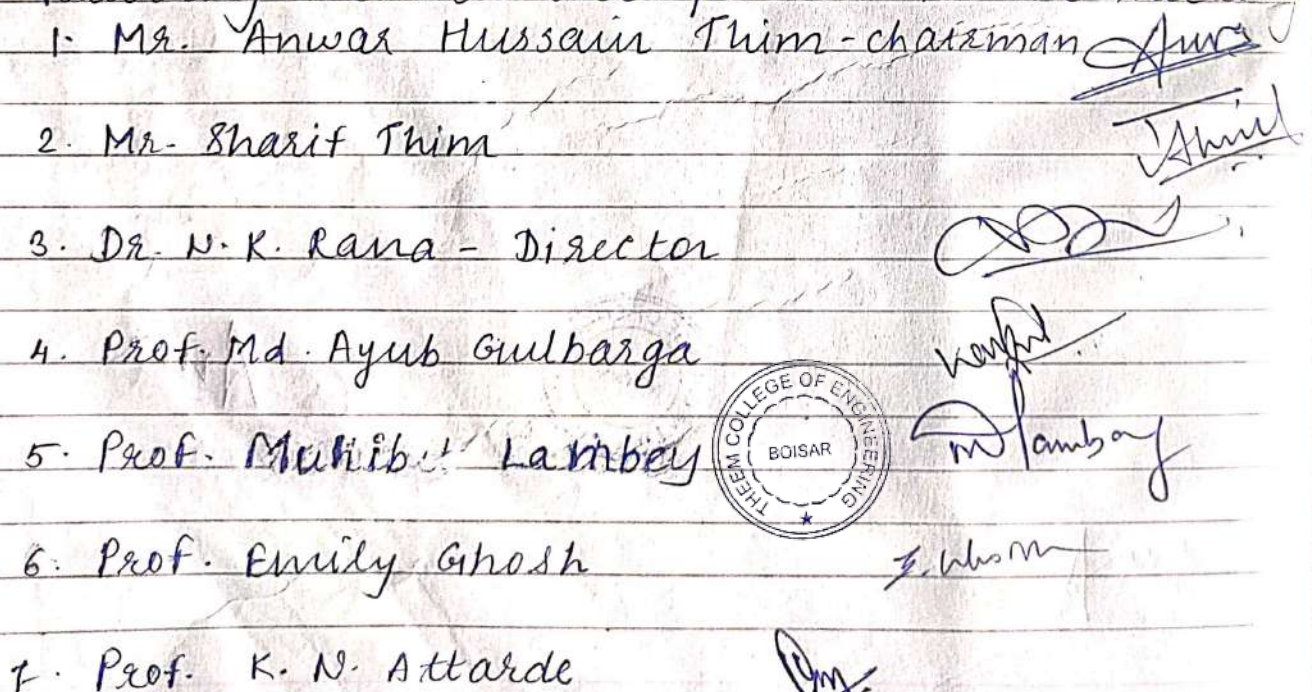 1. Mr. Anwar Hussain Thim - chairman
2. Mr. Sharif Thim
3. Dr. N. K. Rana - Director
4. Prof. Md. Ayub Gulbarga
5. Prof. Muhibul Lambey
THEEM COLLEGE OF ENGINEERING
BOISAR
6. Prof. Emily Ghosh
7. Prof. K. N. Attarde